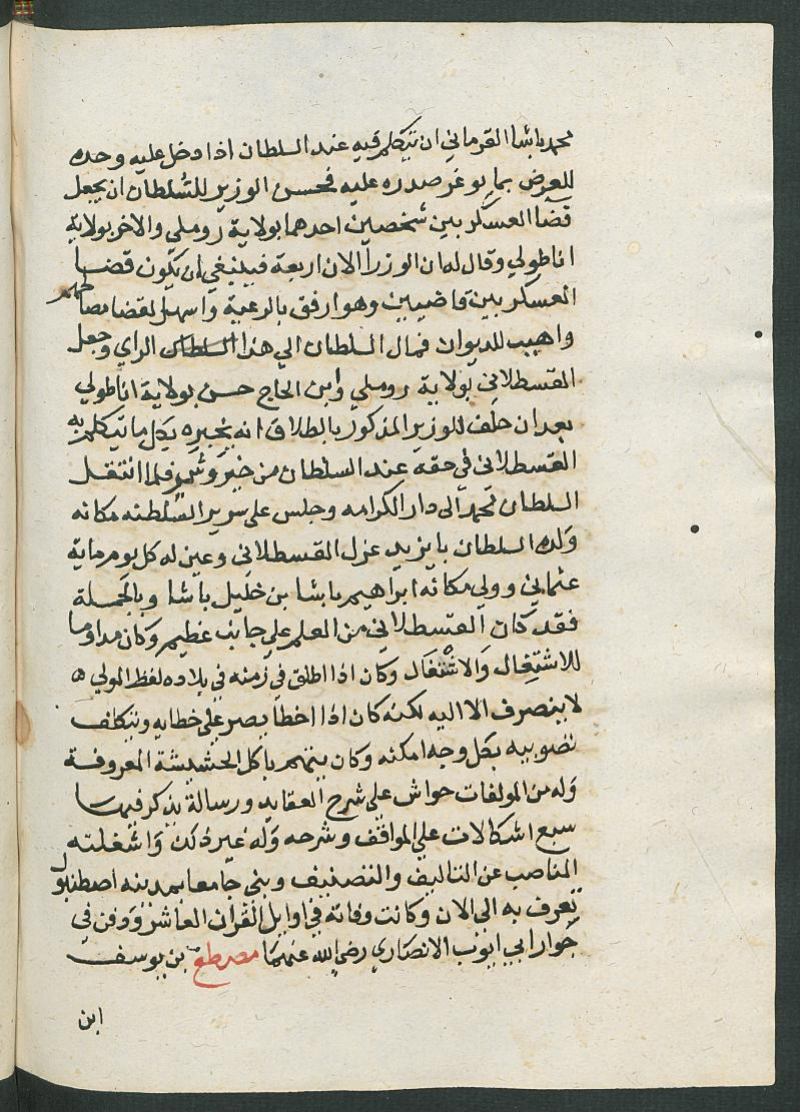 محمد باشا القرماني ان يتكلم فيه عند السلطان اذا دخل عليه وحده
للعرض بما يوغر صدره عليه فحسن الوزير للسلطان ان يجعل
قضا العسكر بين شخصين احدهما بولاية روملي والاخر بولاية
اناطولي وقال له ان الوزرا الان اربعة فينبغي ان يكون قضا
العسكر بين قاضيين وهو ارفق بالرعية واسهل لقضا مصالحهم
واهيب للديوان فمال السلطان الي هذا السلطان الراي وجعل
القسطلاني بولاية روملي وابن الحاج حسن بولاية اناطولي
بعد ان حلف للوزير المذكور بالطلاق انه يخبره بكل ما يتكلم به
القسطلاني في حقه عند السلطان من خير وشر فلما انتقل
السلطان محمد الى دار الكرامه وجلس على سرير السلطنه مكانه
ولده السلطان بايزيد عزل القسطلاني وعين له كل يوم ماية
عثماني وولي مكانه ابراهيم باشا بن خليل باشا وبالجملة
فقد كان القسطلاني من العلم علي جانب عظيم وكان مداوما
للاشتغال والاشتغال وكان اذا اطلق في زمنه في بلاده لفظ المولي ه
لا ينصرف الا اليه لكنه كان اذا اخطا يصر علي خطايه ويتكلف
تصويبه بكل وجه امكنه وكان يتهم باكل الحشيشة المعروفة
وله من المولفات حواش علي شرح العقايد ورسالة يذكر فيها
سبع اشكالات علي المواقف وشرحه وله غير ذلك واشغلته
المناصب عن التاليف والتصنيف وبني جامعا بمدينه اصطنبول
تعرف به الى الان وكانت وفاته في اوايل القران العاشر ودفن في
جوار ابي ايوب الانصاري رضي الله عنهما مصطفى بن يوسف
ابن